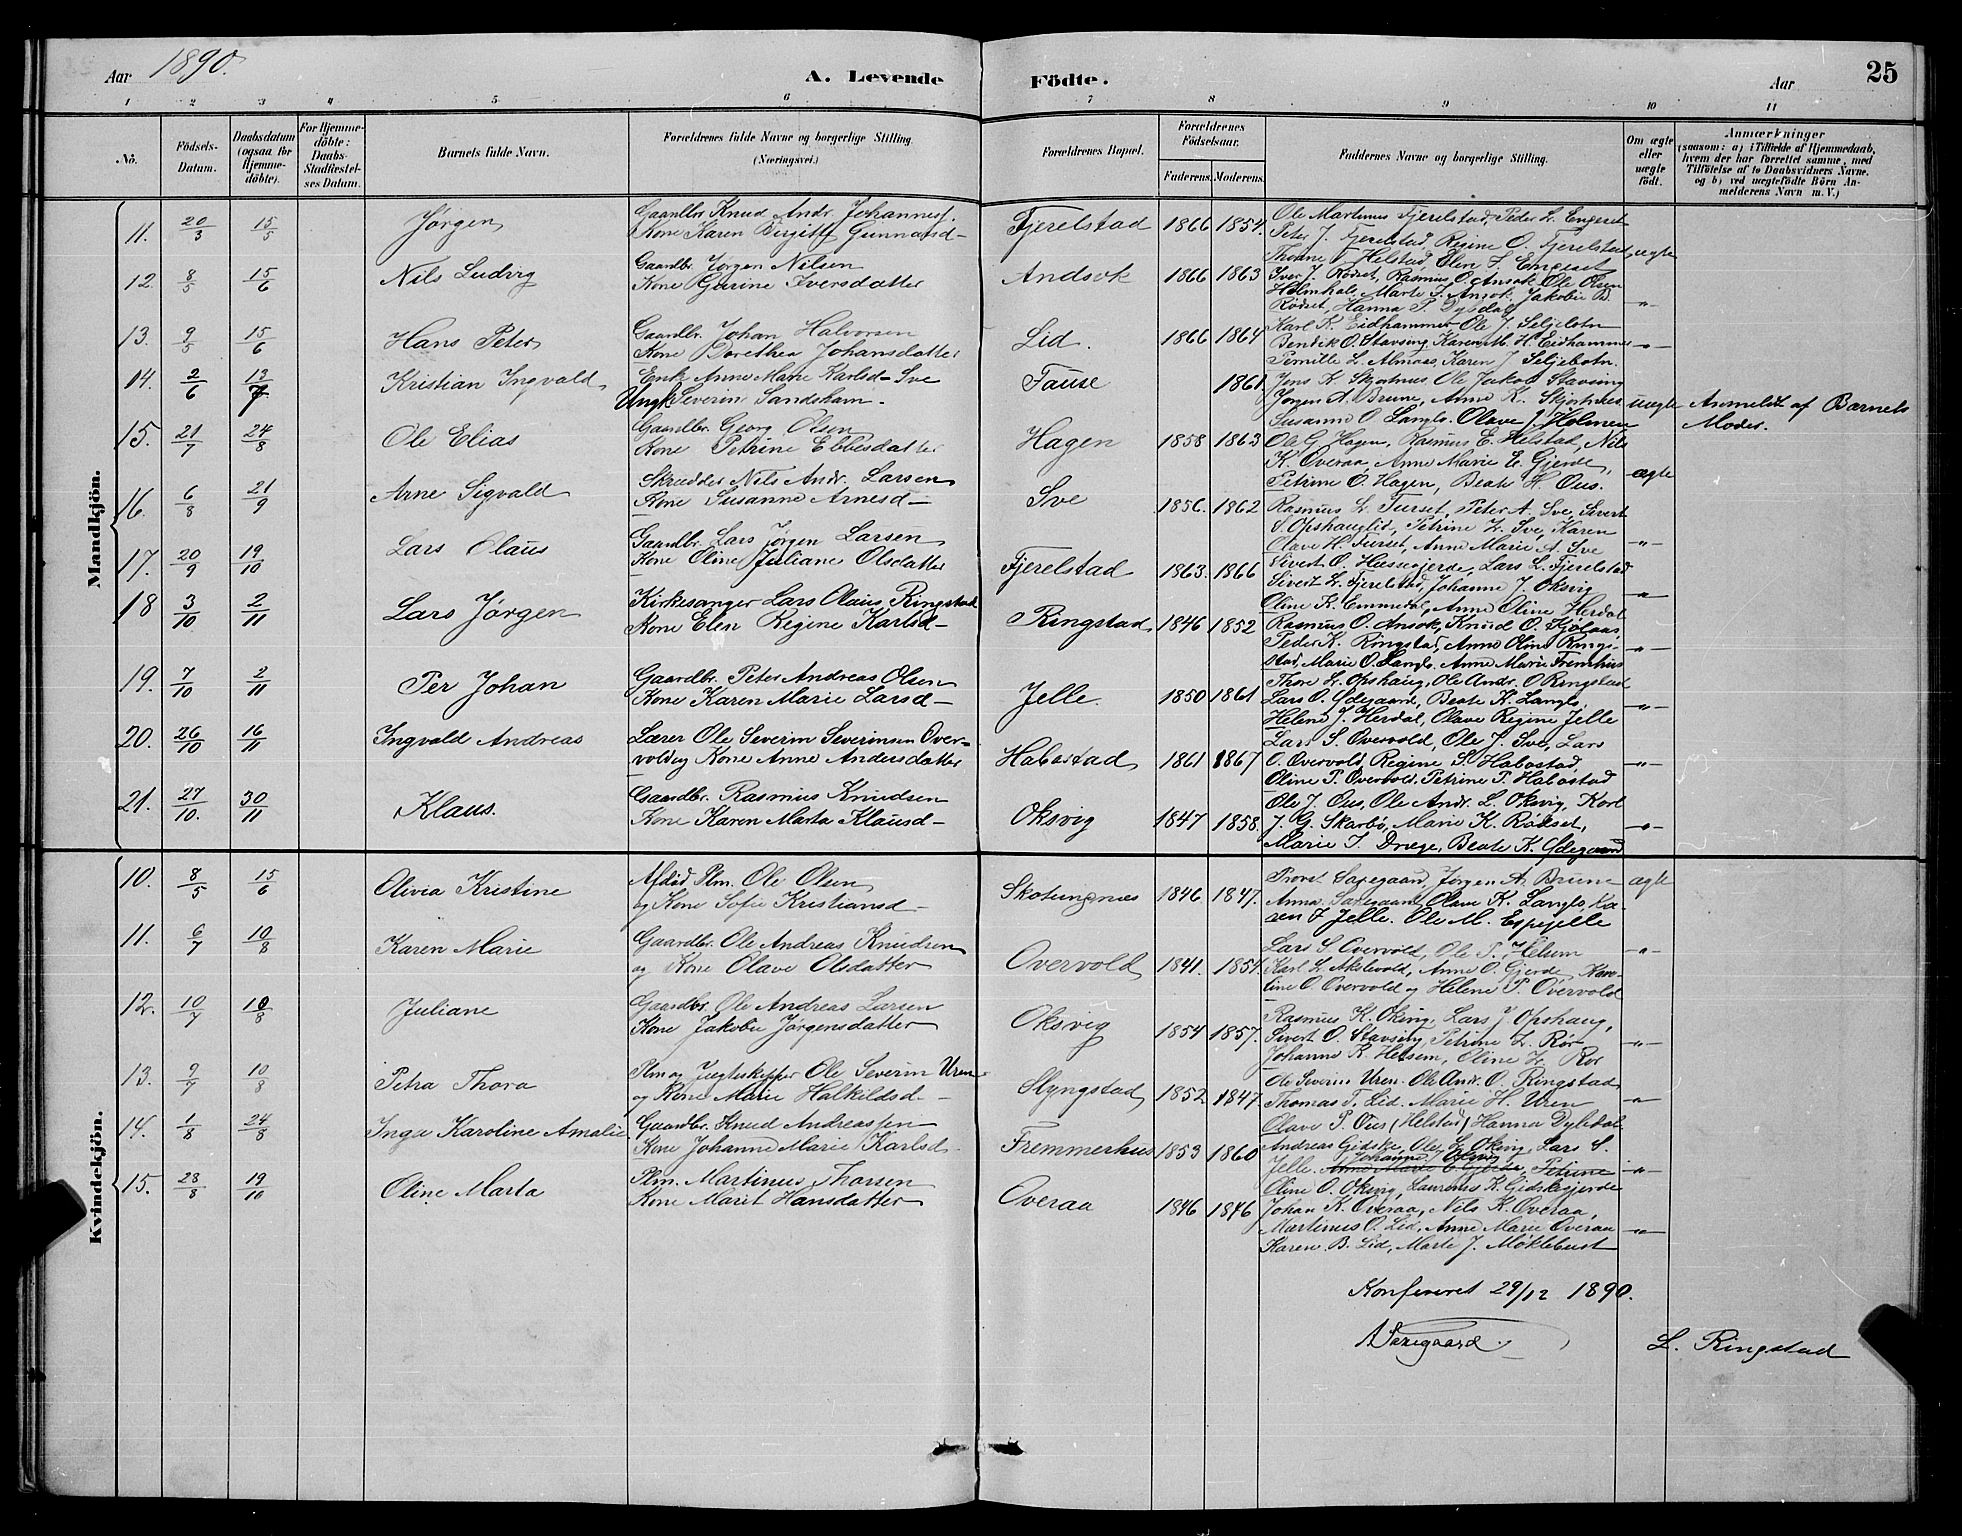 Aar 1890.
A. Levende Födte.
Aar
25
1 2 3 4 5 6 7 8 9 10 11
No.
Födsels-Datum.
Daabsdatum (ogsaa for Hjemme-döbte).
For Hjemme-döbte: Daabs-Stadfæstel-ses Datum.
Barnets fulde Navn.
Forældrenes fulde Navne og borgerlige Stilling. (Næringsvei.)
Forældrenes Bopæl.
Forældrenes Födselsaar.
Faderens. Moderens.
Faddernes Navne og borgerlige Stilling.
Om ægte eller uægte födt.
Anmærkninger
(saasom: a) i Tilfælde af Hjemmedaab,
hvem der har forrettet samme, med
Tilföielse af to Daabsvidners Navne,
og b) ved uægtefödte Börn An-
melderens Navn m. V.)
Mandkjön.
11. 20/3 15/5 Jørgen
Gaardbr Knud Andr. Johannesf.
Kone Karen Birgitte Gunnarsd-
Fjerelstad 1866 1854.
Ole Martinus Fjerelstad, Peder L. Engeset
Peter J. Fjerelstad, Regine O. Fjerelstad, ægte
Thorine Helstad, Olen L. Engeset
12. 8/5 15/6 Nils Ludvig
Gaardbr Jørgen Nilsen
Kone Gurine Iversdatter
Andsok 1866 1863
Iver J. Rødset, Rasmus O. Ansok, Ole Olsen
Holmhale, Marte J. Ansok, Jakobie B.
Rødset, Hanna P. Dybdal -"-
13. 9/5 15/6 Hans Peter
Gaardbr. Johan Halvorsen
Kone Dorethea Johansdatter
Lid. 1866 1864
Karl K. Eidhammer Ole J. Seljebotn
Bendik O. Stavseng, Karen M. H. Eidhammer -"-
Pernille L. Almaas, Karen J. Seljebotn.
14. 2/6 13/7 Kristian Ingvald
Enke Anne Marie Karlsd- Sve
Ungk Severin Sandsham.
Fause 1861
Jens K. Skjortnes, Ole Jakob Stavseng
Jørgen A. Brune, Anne K. Skjortnes uægte Anmeldt af Barnets
Susanne O. Langlo. Olave J. Holmen Moder.
15. 21/7 24/8 Ole Elias
Gaardbr. Georg Olsen
Kone Petrine Ebbesdatter
Hagen 1858 1863
Ole G. Hagen, Rasmus E. Helstad, Nils
K. Overaa, Anne Marie E. Gjerde, ægte
Petrine O. Hagen, Beate H. Ous.
16. 6/8 21/9 Arne Sigvald
Skrædder Nils Andr. Larsen
Kone Susanne Arnesd-
Sve 1856. 1862
Rasmus L. Furset, Peter A. Sve, Sivert
S. Opshauglid, Petrine L. Sve, Karen
Olave H. Furset, Anne Marie A. Sve -"-
17. 20/9 19/10 Lars Olaus
Gaardbr. Lars Jørgen Larsen
Kone Oline Juliane Olsdatter
Fjerelstad 1863. 1866
Sivert O. Hessegjerde, Lars L. Fjerelstad
Sivert L. Fjerelstad, Johanne J. Oksvig
Oline K. Emmedal, Anne Oline Herdal -"-
18 3/10 2/11 Lars Jørgen
Kirkesanger Lars Olaus Ringstad
Kone Elen Regine Karlsd-
Ringstad 1846 1852
Rasmus O. Ansok, Knud O. Kjølaas,
Peder K. Ringstad, Anne Oline Ring-
stad, Marie O. Langlo, Anne Marie Fremhus -"-
19. 7/10 2/11 Per Johan
Gaardbr. Peter Andreas Olsen
Kone Karen Marie Larsd-
Jelle. 1850 1861
Thore L. Opshaug, Ole Andr. O Ringstad
Lars O. Ødegaard, Beate K. Langlo,
Helene J. Herdal, Olave Regine Jelle -"-
20. 26/10 16/11 Ingvald Andreas
Lærer Ole Severin Severinsen Over-
vold og Kone Anne Andersdatter
Habostad 1861 1867
Lars S. Overvold, Ole J. Sve, Lars
O. Overvold, Regine S. Habostad,
Oline P. Overvold, Petrine P. Habostad -"-
21. 27/10. 30/11 Klaus.
Gaardbr. Rasmus Knudsen
Kone Karen Marta Klausd-
Oksvig 1847 1858.
Ole J. Ous, Ole Andr. L. Oksvig, Karl
J. G. Skarbø, Marie K. Rødset,
Marie I. Drege, Beate K. Ødegaard -"-
Kvindekjön.
10. 8/5 15/6 Olivia Kristine
Afdød Plm. Ole Olsen
og Kone Sofie Kristiansd-
Skotungnæs 1846 1847.
Provst Saxegaard, Jørgen A. Brune ægte
Anna Saxegaard, Olave K. Langlo, Ka-
ren J Jelle. Ole M. Espejelle
11. 6/7 10/8 Karen Marie
Gaardbr. Ole Andreas Knudsen
og Kone Olave Olsdatter
Overvold 1841. 1854.
Lars S. Overvold, Ole P. Helsem -"-
Karl L. Akslevold, Anne O. Gjerde, Kar-
line O. Overvold og Helene P. Overvold
12. 10/7 10/8 Juliane
Gaardbr. Ole Andreas Larsen
Kone Jakobie Jørgensdatter
Oksvig 1854 1857.
Rasmus K. Oksvig, Lars J. Opshaug,
Sivert O. Stavseng, Petrine L. Rør -"-
Johanne R. Helsem, Oline L. Rør
13. 9/7 10/8 Petra Thora
Plm og Jægteskipper Ole Severin Uren
og Kone Marie Halkildsd-
Slyngstad 1852 1847.
Ole Severin Uren. Ole Andr. O. Ringstad
Thomas T. Lid. Marie H. Uren -"-
Olave P. Ous (Helstad) Hanna Dyledal
14. 1/8 24/8 Inga Karoline Amalie
Gaardbr. Knud Andreassen
Kone Johanne Marie Karlsd
Fremmerhus 1853 1860
Andreas Gidske, Ole L. Oksvig, Lars S.
Johanne Oksvig
Jelle. Anne Marie E Gjerde, Petrine -"-
Oline O. Oksvig, Laurense K. Gidskegjerde
15. 28/8 19/10 Oline Marta
Plm. Martinus Thorsen
Kone Marit Hansdatter
Overaa 1846 1846
Johan K. Overaa, Nils K. Overaa,
Martinus O. Lid, Anne Marie Overaa -"-
Karen B. Lid, Marte J. Møklebust
Konfereret 29/12 1890.
A Saxegaard
L. Ringstad